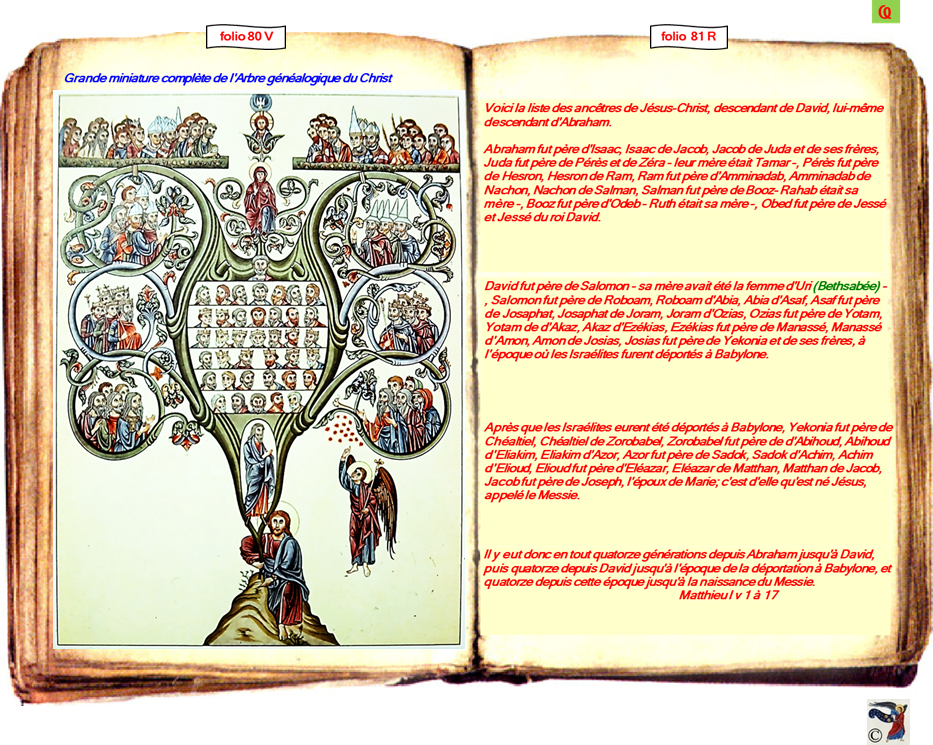 folio 80 V
folio 81 R
Grande miniature complète de l'Arbre généalogique du Christ
Voici la liste des ancêtres de Jésus-Christ, descendant de David, lui-même
descendant d'Abraham.
Abraham fut père d'Isaac, Isaac de Jacob, Jacob de Juda et de ses frères,
Juda fut père de Pérès et de Zéra - leur mère était Tamar -, Pérès fut père
de Hesron, Hesron de Ram, Ram fut père d'Amminadab, Amminadab de
Nachon, Nachon de Salman, Salman fut père de Booz- Rahab était sa
mère -, Booz fut père d'Odeb - Ruth était sa mère -, Obed fut père de Jessé
et Jessé du roi David.
David fut père de Salomon - sa mère avait été la femme d'Uri (Bethsabée) -
, Salomon fut père de Roboam, Roboam d'Abia, Abia d'Asaf, Asaf fut père
de Josaphat, Josaphat de Joram, Joram d'Ozias, Ozias fut père de Yotam,
Yotam de d'Akaz, Akaz d'Ezékias, Ezékias fut père de Manassé, Manassé
d'Amon, Amon de Josias, Josias fut père de Yekonia et de ses frères, à
l'époque où les Israélites furent déportés à Babylone.
Après que les Israélites eurent été déportés à Babylone, Yekonia fut père de
Chéaltiel, Chéaltiel de Zorobabel, Zorobabel fut père de d'Abihoud, Abihoud
d'Eliakim, Eliakim d'Azor, Azor fut père de Sadok, Sadok d'Achim, Achim
d'Elioud, Elioud fut père d'Eléazar, Eléazar de Matthan, Matthan de Jacob,
Jacob fut père de Joseph, l'époux de Marie; c'est d'elle qu'est né Jésus,
appelé le Messie.
Il y eut donc en tout quatorze générations depuis Abraham jusqu'à David,
puis quatorze depuis David jusqu'à l'époque de la déportation à Babylone, et
quatorze depuis cette époque jusqu'à la naissance du Messie.
Matthieu I v 1 à 17
©